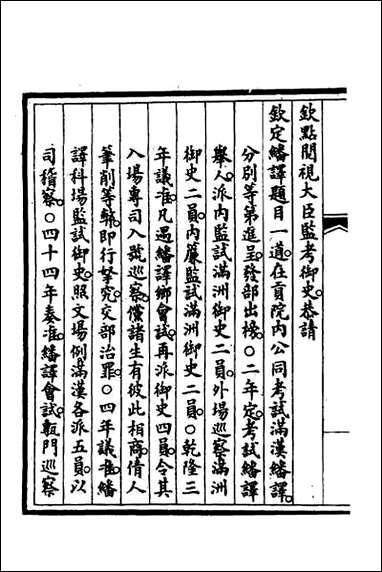 欽點閱視大臣監考御史恭請
欽定繙譯題目一道在貢院內公同考試滿漢繙譯
分別等第進呈發部出榜○二年定考試繙譯
舉人派內監試滿洲御史二員外場巡察滿洲
御史二員內簾監試滿洲御史二員○乾隆三
年議准凡遇繙譯鄉會試再派御史四員令其
入場專司入號巡察儻諸生有彼此相商倩人
筆削等弊即行拏究交部治罪○四年議准繙
譯科場監試御史照文場例滿漢各派五員以
司稽察○四十四年奏准繙譯會試甎門巡察